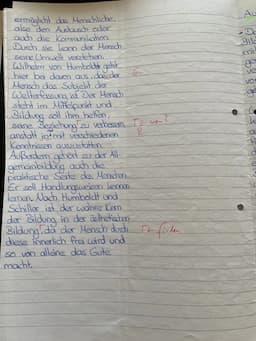 ermöglicht das Menschliche,
also den Austausch oder
auch die Kommunikation.
Durch sie kann der Mensch
seine Umwelt verstehen.
Wilhelm von Humboldt geht
hier bei davon aus, dass der
Mensch das Subjekt der
Welterfassung ist. Der Mensch
steht im Mittelpunkt und
Bildung soll ihm helfen,
seine Beziehung zu verbessern,
anstatt ihn mit verschiedenen
Kenntnissen auszustatten.
Außerdem gehört zu der All-
gemeinbildung auch die
praktische Seite des Menschen.
Er soll Handlungsweisen kennen
lernen. Nach Humboldt und
Schiller ist der wahre Kern
der Bildung in der ästhetischen
Bildung, da der Mensch durch
diese innerlich frei wird und
so von alleine das Gute
macht.